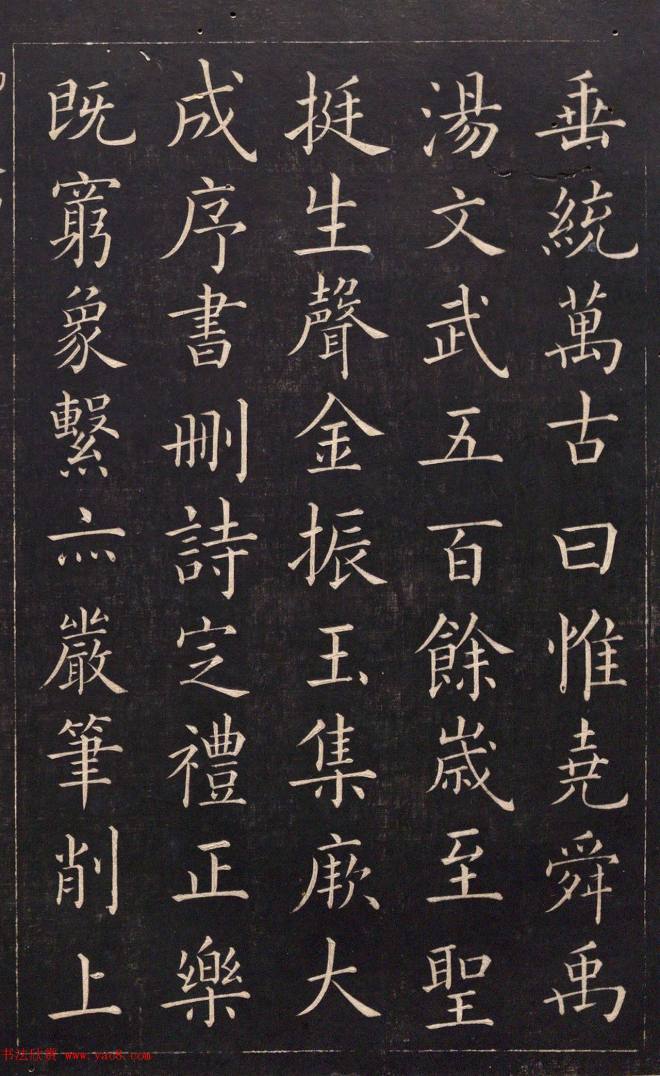 垂統萬古曰惟堯舜禹
湯文武五百餘歲至聖
挺生聲金振玉集厥大
成序書刪詩定禮正樂
既窮象繫亦嚴筆削上
书法欣赏 www.yac8.com